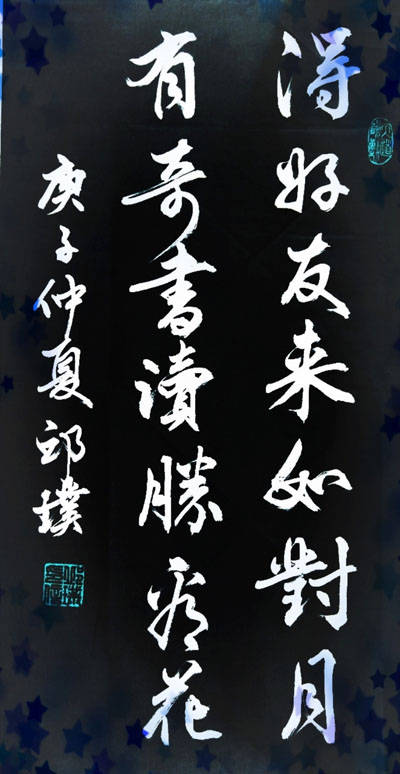 得好友来如對月
有奇書讀勝看花
庚子仲夏邱璞